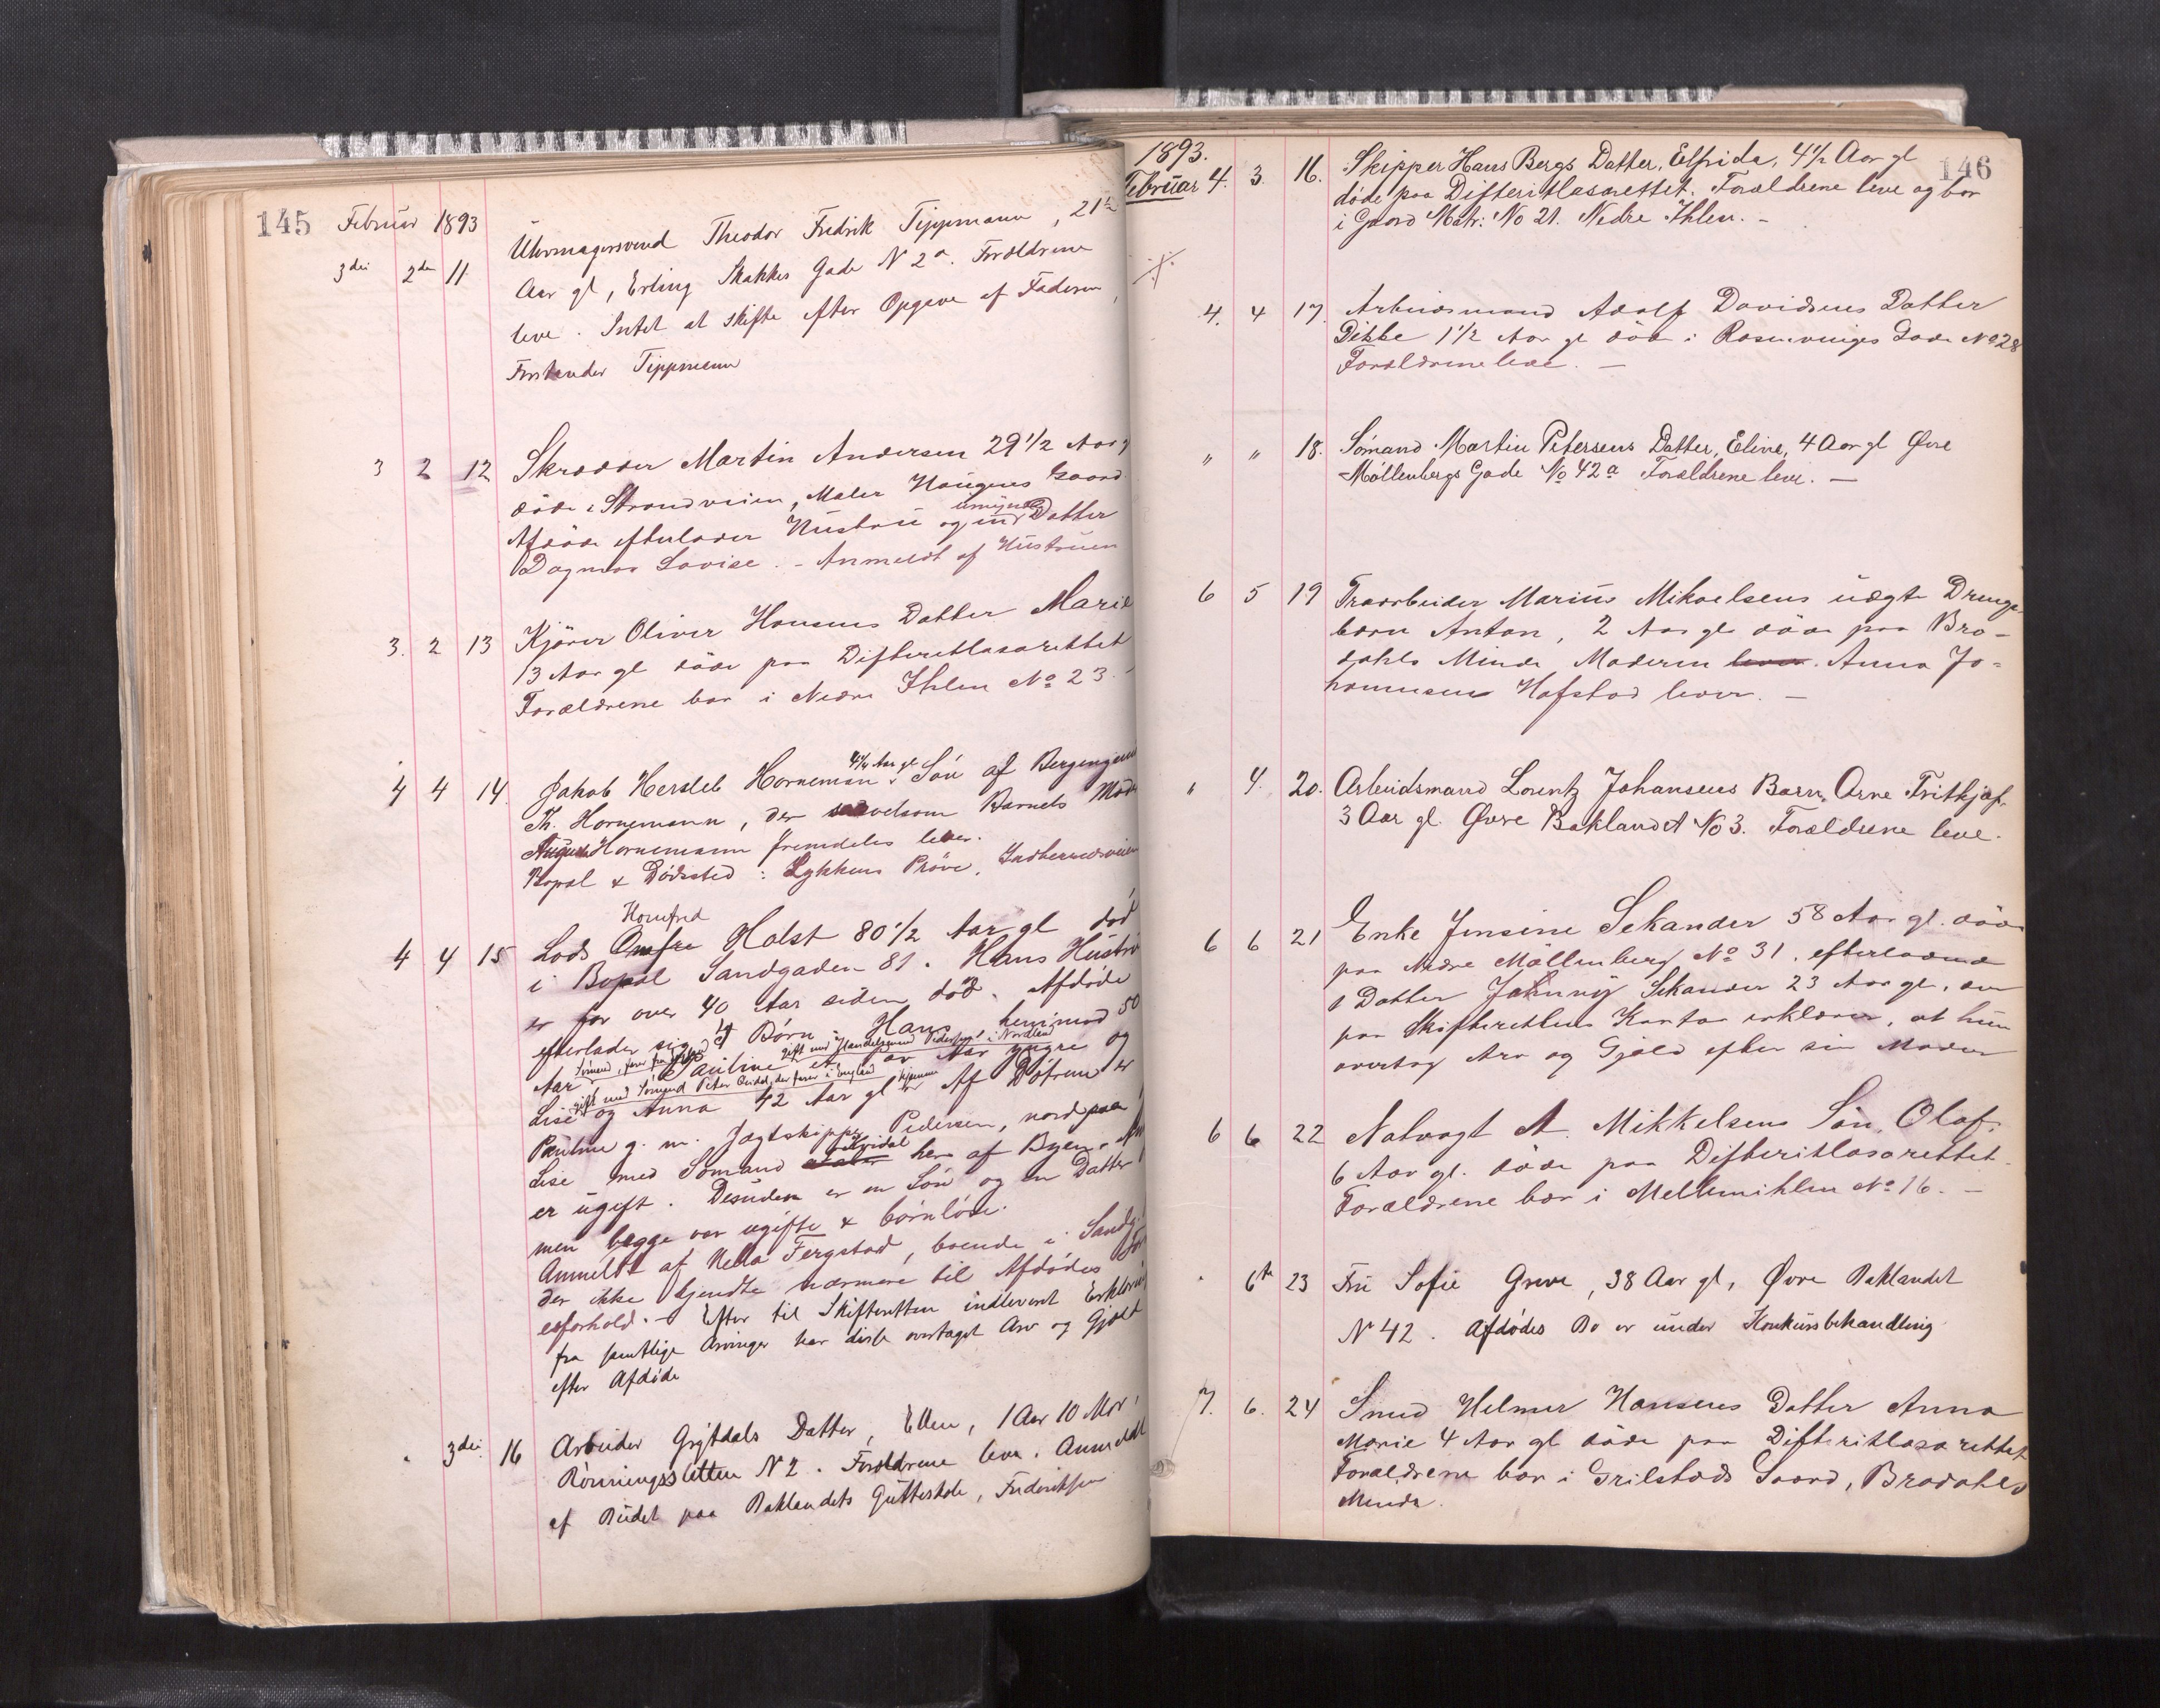 145 Februar 1893
3die 2den 11 Uhrmagersvend Theodor Fredrik Tippmann, 21½
Aar gl, Erling Skakkes Gade N 2a. Forældrene
leve. Intet at skifte efter Opgave af Faderen,
Forstander Tippmann
3 2 12 Skrædder Martin Andersen 29 1/2 Aar g
døde i Strandveien, Maler Haugens Gaard.
Afdøde efterlader Hustru og en umyndig Datter
Dagmar Lovise. - Anmeldt af Hustruen
3. 2 13 Kjører Oliver Hansens Datter Marie
3 Aar gl døde paa Difteritlasarettet
Forældrene bor i Nedre Ihlen No 23. -
4 4 14. Jakob Hersleb Horneman 4¼ Aar gl Søn af Bergingeniø
Th. Hornemann, der saavelsom Barnets Mod
Hornemann fremdeles lever.
Bopæl & Dødssted: Lykkens Prøve, Indherredsveien
Homfred
4 4 15 Lods Omfre Holst 80 1/2 Aar gl død
i Bopæl Sandgaden 81. Hans Hustru
er for over 40 Aar siden død. Afdøde
efterlader sig 4 Børn Hans henimod 50
Aar Pauline et Par Aar yngre og
gift med Handelsmand Pedersen i Nordland
Lise og Anna 42 Aar gl hjemme Af Døtrene er
gift med Sømand Peter Qvidal, der farer i England
Pauline g. m. Jægtskipper Pedersen, nordpaa
Lise med Sømand Hvidal her af Byen.
er ugift. Desuden er en Søn og en Datter
men begge var ugifte & børnløse.
Anmeldt af Nella Fergstad, boende i Sandg.
der ikke kjendte nærmere til Afdødes
esforhold. - Efter til Skifteretten indleveret Erklæring
fra samtlige Arvinger har disse overtaget Arv og Gjæld
efter Afdøde
" 3die 16 Arbeider Grytdals Datter, Ellen, 1 Aar 10 Mdr,
Rønningsletten N 2. Forældrene leve. Anmeldt
af Budet paa Baklandets Gutteskole, Frederiksen
146
1893.
Februar 4. 3. 16. Skipper Hans Bergs Datter, Elfrida, 4½ Aar gl
døde paa Difteritlasarettet. Forældrene leve og bor
i Gaard Matr: No 21. Nedre Ihlen. -
4. 4 17. Arbeidsmand Adolf Davidsens Datter
Dikke 1½ Aar gl døde i Rosenvinges Gade No 28
Forældrene leve. -
" " 18. Sømand Martin Petersens Datter, Eline, 4 Aar gl Øvre
Møllenbergs Gade No 42a Forældrene leve. -
6 5 19 Træarbeider Marius Mikaelsens uægte Drenge
barn Anton, 2 Aar gl døde paa Bro-
dahls Minde, Moderen lever. Anna Jo=
hannesen Hofstad lever. -
" 4. 20. Arbeidsmand Lorentz Johansens Barn, Arne Fritkjof,
3 Aar gl. Øvre Baklandet No 3. Forældrene leve.
6 6 21 Enke Jensine Sekander 58 Aar gl. døde
paa Nedre Møllenberg No 31. efterladende
1 Datter Jahnny Sekander 23 Aar gl, der
paa Skifterettens Kontor erklærer, at hun
overtog Arv og Gjæld efter sin Moder
6 6 22 Natvagt A. Mikkelsens Søn, Olaf,
6 Aar gl. døde paa Difteritlasarettet.
Forældrene bor i Mellemihlen No 16. -
" 6te 23 Fru Sofie Greve, 38 Aar gl, Øvre Baklandet
N 42. Afdødes Bo er under Konkursbehandling
7. 6. 24 Smed Helmer Hansens Datter Anna
Marie 4 Aar gl døde paa Difteritlasarettet
Forældrene bor i Grilstads Gaard, Brodahls
Minde.